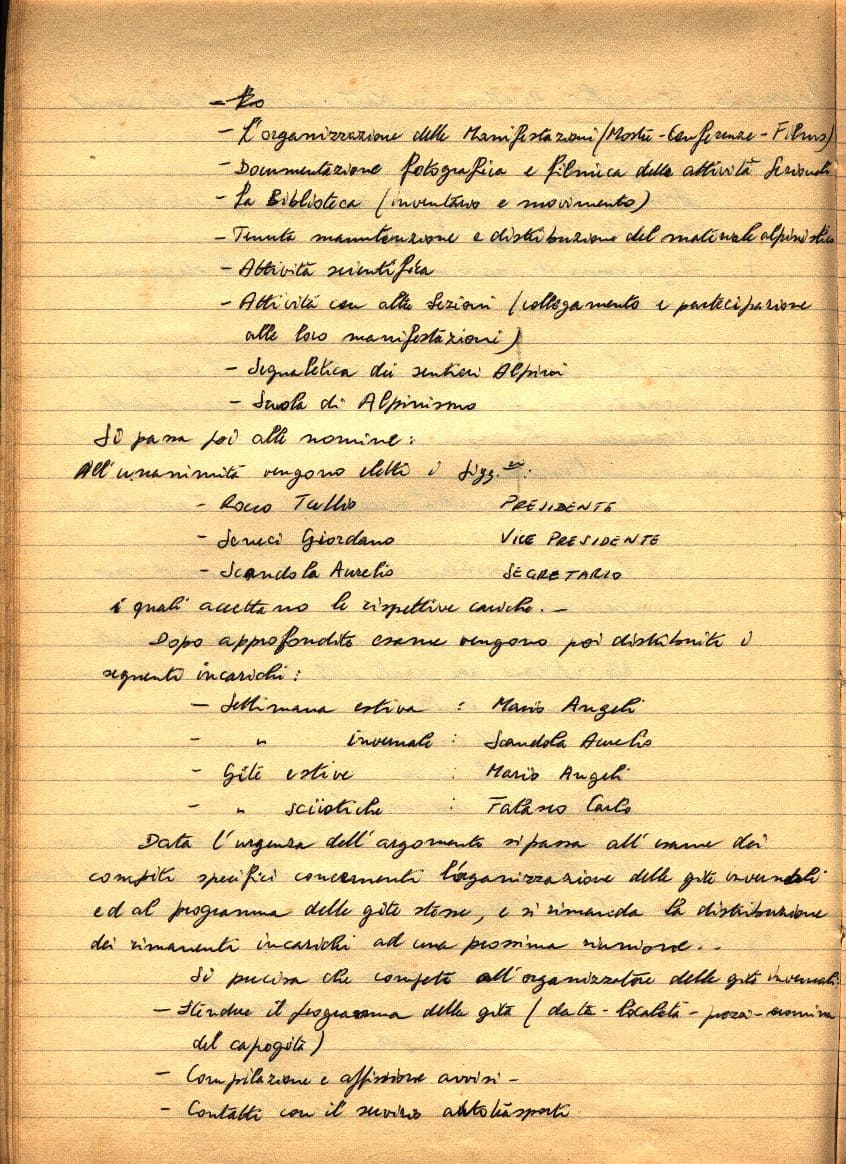 - L'organizzazione delle Manifestazioni (Mostre - Conferenze - Films)
- Documentazione fotografica e filmica delle attività Sezionali
- La Biblioteca (inventario e movimento)
- Tenuta manutenzione e distribuzione del materiale alpinistico
- Attività scientifica
- Attività con altre Sezioni (collegamento e partecipazione
alle loro manifestazioni)
- Segnaletica dei sentieri Alpini
- Scuola di Alpinismo
Si passa poi alle nomine:
All'unanimità vengono eletti i Sigg.ri:
- Rocco Tullio PRESIDENTE
- Seneci Giordano VICE PRESIDENTE
- Scandola Aurelio SEGRETARIO
i quali accettano le rispettive cariche. -
Dopo approfondito esame vengono poi distribuiti i
seguenti incarichi:
- Settimana estiva : Mario Angeli
- " invernale : Scandola Aurelio
- Gite estive : Mario Angeli
- " sciistiche : Falasco Carlo
Data l'urgenza dell'argomento si passa all'esame dei
compiti specifici concernenti l'organizzazione delle gite invernali
ed al programma delle gite stesse, e si rimanda la distribuzione
dei rimanenti incarichi ad una prossima riunione. -
Si precisa che compete all'organizzatore delle gite invernali:
- Stendere il programma delle gite (data - località - - nomina
del capogita)
- Compilazione e affissione avvisi -
- Contatti con il servizio autotrasporti